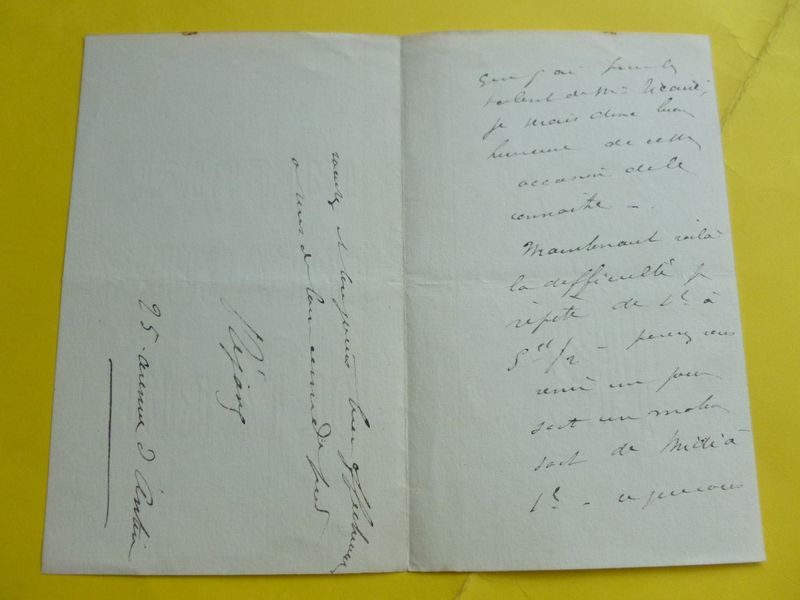 que j'ai pour le
talent de Mr
je serais donc bien
heureuse de cette
occasion de le
connaître -.
Maintenant voilà
la difficulté je
répète de 1h à
5h 1/2 - pouvez vous
venir un jour
soit un matin
soit de Midi à
1h -
et toujours bien
à vous de
Réjane
25 avenue d'Antin